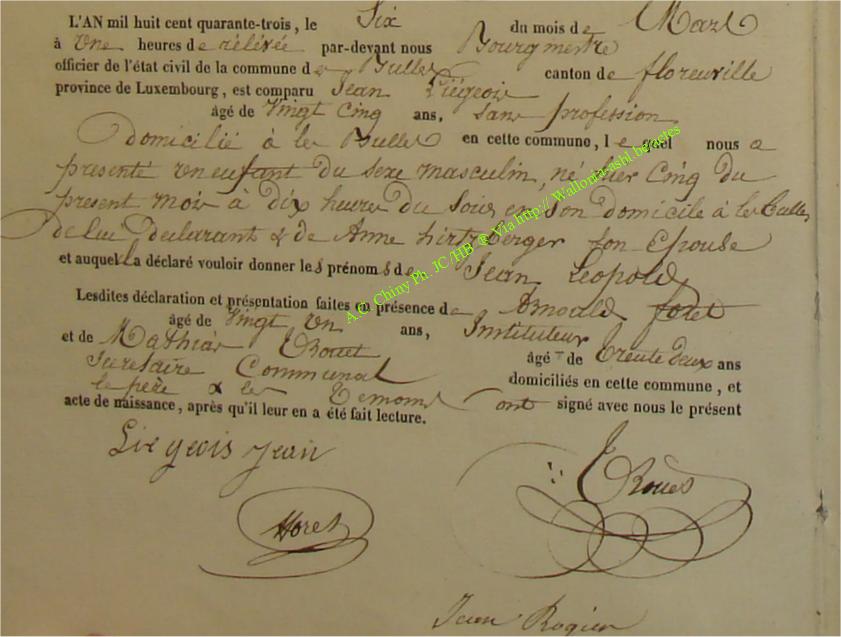 L'AN mil huit cent quarante-trois, le Six du mois de Mars
à Une heures de rélévée par-devant nous Bourgmestre
officier de l'état civil de la commune de Bulles canton de floreuville
province de Luxembourg, est comparu Jean Liégeois
âgé de Vingt Cinq ans, sans profession
domicilié à les Bulles en cette commune, lequel nous a
presenté un enfant du sexe masculin, né hier Cinq du
present mois à dix heures du Soir, en son domicile à les Bulles
de lui declarant & de Anne hirtzberger son Epouse
et auquel il a déclaré vouloir donner les prénoms de Jean Léopold
Lesdites déclaration et présentation faites en présence de Arnould foret
âgé de Vingt un ans, Instituteur
et de Mathias âgé de trente deux ans
Secretaire Communal domiciliés en cette commune, et
le père & les temoins ont signé avec nous le présent
acte de naissance, après qu'il leur en a été fait lecture.
Liegeois Jean
foret
Jean Rogier
A.C. Chiny Ph. JC/HB @ Via http://Wallonia-asbl.be/actes